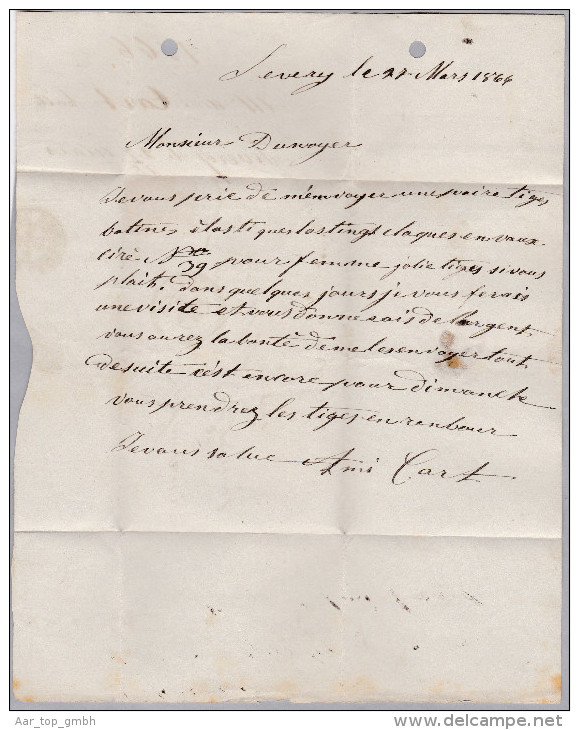 Severy le 27 Mars 1866
Monsieur Dunoyer
Je vous prie de m'envoyer une paire tiges
botines élastiques lastings claques en vaux
ciré No 39 pour femme jolie tiges si vous
plait. Dans quelques jours je vous ferais
une visite et vous donnerais de l'argent,
vous aurez la bonté de me les envoyer tout
de suite c'est encore pour dimanche
vous prendrez les tiges en ranbour
Je vous salue Ami Cart
Aar_top_gmbh
www.delcampe.net